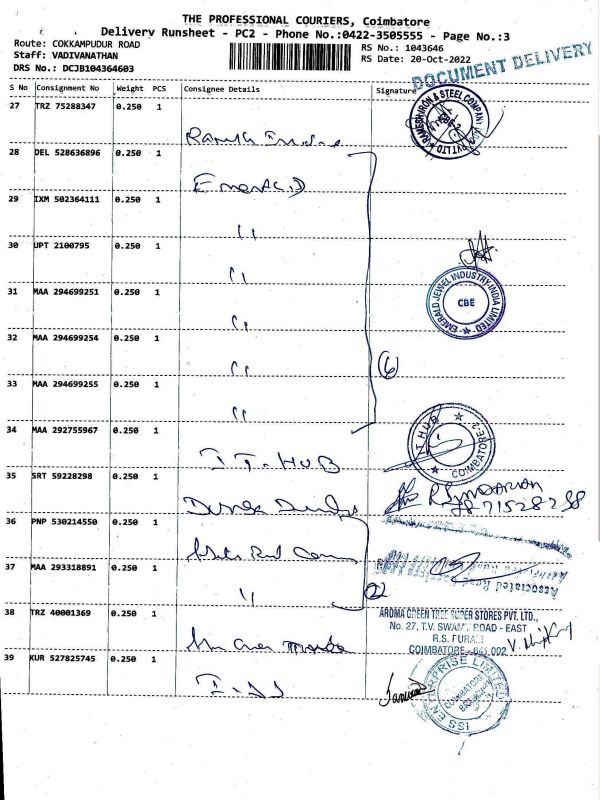 THE PROFESSIONAL COURIERS, Coimbatore
Delivery Runsheet - PC2 - Phone No.:0422-3505555 - Page No.:3
Route: COKKAMPUDUR ROAD
Staff: VADIVANATHAN
DRS No.: DCJB104364603
RS No.: 1043646
RS Date: 20-Oct-2022
DOCUMENT DELIVERY
S No Consignment No Weight PCS Consignee Details Signature
27 TRZ 75288347 0.250 1
28 DEL 528636896 0.250 1
Emerald
29 IXM 502364111 0.250 1
"
30 UPT 2100795 0.250 1
"
31 MAA 294699251 0.250 1
"
EMERALD JEWEL INDUSTRY INDIA LIMITED
CBE
32 MAA 294699254 0.250 1
"
(6)
33 MAA 294699255 0.250 1
"
34 MAA 292755967 0.250 1
I T. HUB
IT HUB
COIMBATORE-2
35 SRT 59228298 0.250 1
36 PNP 530214550 0.250 1
37 MAA 293318891 0.250 1
"
(2)
Associated Road
38 TRZ 40001369 0.250 1
AROMA GREEN TREE SUPER STORES PVT. LTD.,
No. 27, T.V. SWAMY ROAD - EAST
R.S. PURAM
COIMBATORE - 641 002
39 KUR 527825745 0.250 1
ISS ENTERPRISE LIMITED
COIMBATORE
BRANCH